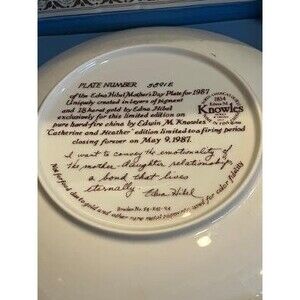 PLATE NUMBER
of the Edna Hibel Mother's Day Plate for 1987
Uniquely created in layers of pigment
and 18 karat gold by Edna Hibel
exclusively for this limited edition on
pure hard-fire china by Edwin M. Knowles
"Catherine and Heather" edition limited to a firing period
closing forever on May 9, 1987.
I want to convey the emotionality of
the mother-daughter relationship,
a bond that lives
eternally Edna Hibel
Knowles
Not for food use due to gold and other rare metal pigments used for color fidelity